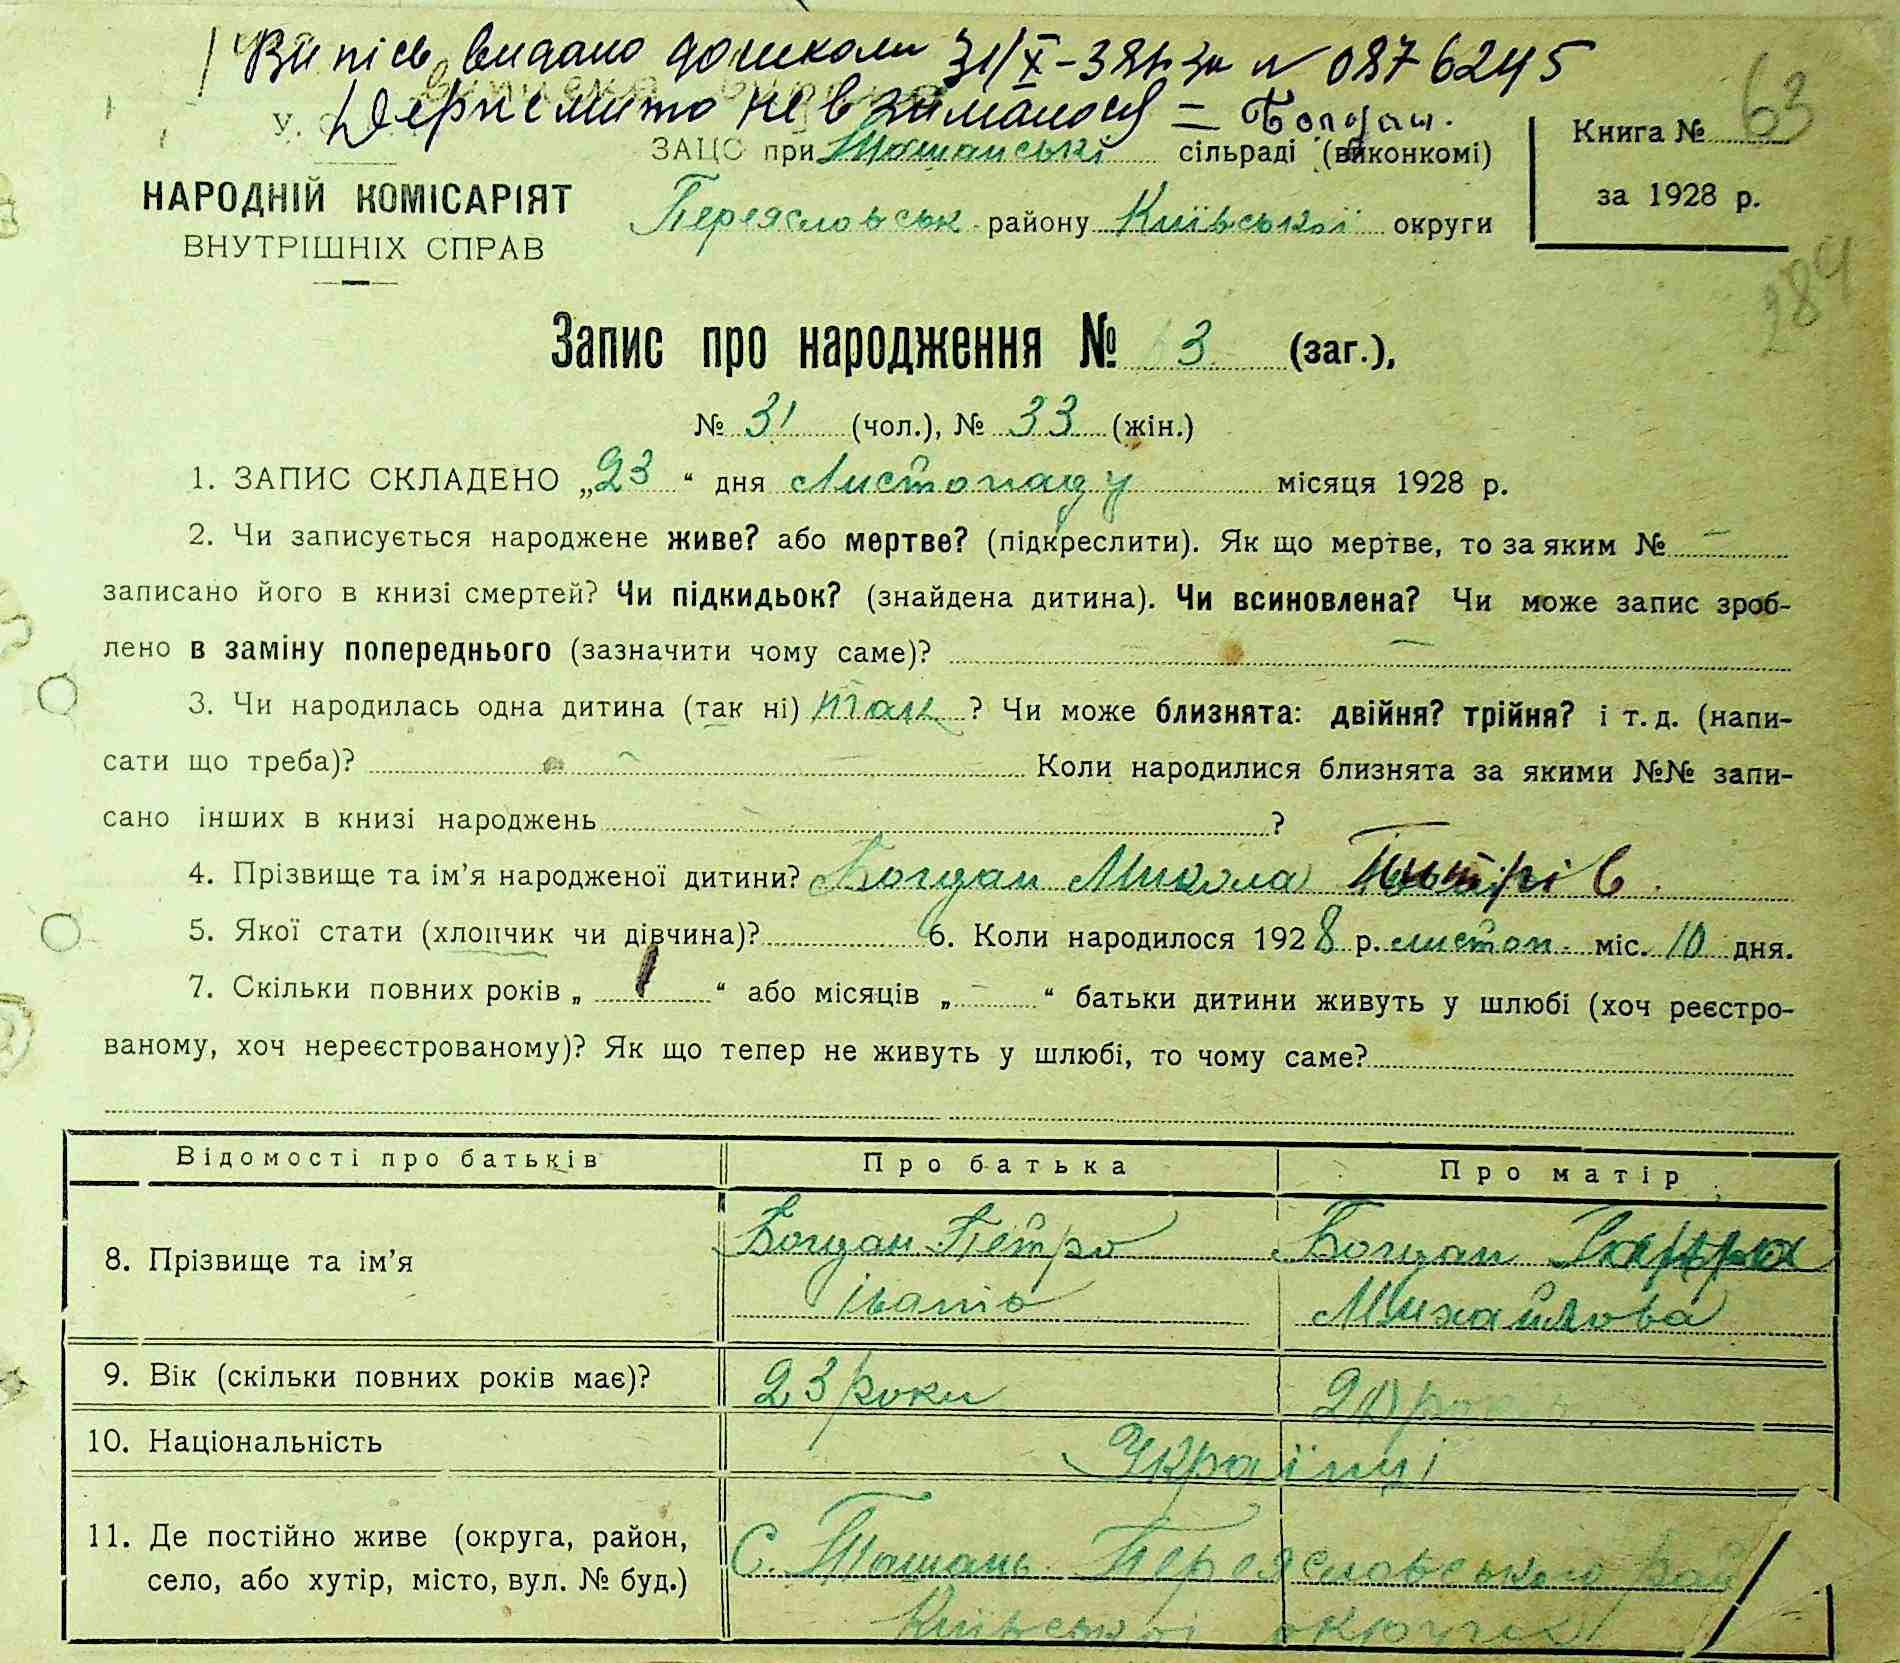 Випісь видано до школи 31/X-38 р. за № 0876245
Держ мито не взималося = Богдан.
У.
ЗАЦС при Ташанській сільраді (виконкомі)
Книга № 63
НАРОДНІЙ КОМІСАРІЯТ
за 1928 р.
ВНУТРІШНІХ СПРАВ
Переяславськ району Київської округи
284
Запис про народження № 63 (заг.),
№ 31 (чол.), № 33 (жін.)
1. ЗАПИС СКЛАДЕНО „23“ дня Листопаду місяця 1928 р.
2. Чи записується народжене живе? або мертве? (підкреслити). Як що мертве, то за яким № –
записано його в книзі смертей? Чи підкидьок? (знайдена дитина). Чи всиновлена? Чи може запис зроб-
лено в заміну попереднього (зазначити чому саме)? –
3. Чи народилась одна дитина (так ні) так ? Чи може близнята: двійня? трійня? і т. д. (напи-
сати що треба)? Коли народилися близнята за якими №№ запи-
сано інших в книзі народжень ?
4. Прізвище та ім'я народженої дитини? Богдан Микола Питрів.
5. Якої стати (хлопчик чи дівчина)? 6. Коли народилося 1928 р. листоп. міс. 10 дня.
7. Скільки повних років „ 1 “ або місяців „ – “ батьки дитини живуть у шлюбі (хоч реєстро-
ваному, хоч нереєстрованому)? Як що тепер не живуть у шлюбі, то чому саме?
Відомості про батьків Про батька Про матір
8. Прізвище та ім'я Богдан Петро Богдан
Іванів Михайлова
9. Вік (скільки повних років має)? 23 роки 20 рок
10. Національність Українці
11. Де постійно живе (округа, район, С. Ташань Переяславського рай
село, або хутір, місто, вул. № буд.) Київської округи